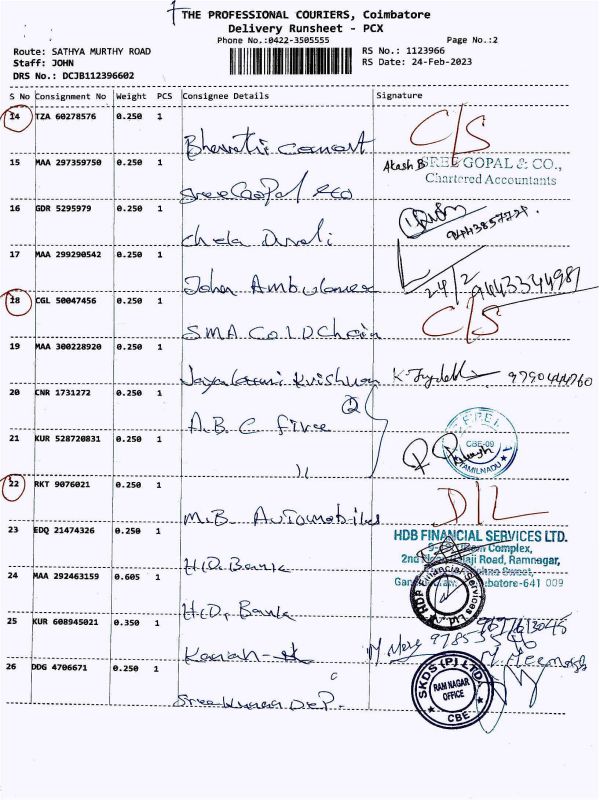 THE PROFESSIONAL COURIERS, Coimbatore
Delivery Runsheet - PCX
Phone No.:0422-3505555 Page No.:2
Route: SATHYA MURTHY ROAD RS No.: 1123966
Staff: JOHN RS Date: 24-Feb-2023
DRS No.: DCJB112396602
S No Consignment No Weight PCS Consignee Details Signature
14 TZA 60278576 0.250 1 C/S
Bharathi Cement
15 MAA 297359750 0.250 1 Akash B SREE GOPAL & CO.,
Chartered Accountants
Sree Gopal &co
16 GDR 5295979 0.250 1
9443857729.
17 MAA 299290542 0.250 1
John Ambulance 24/2 9443344987
18 CGL 50047456 0.250 1 C/S
SMA COLDChain
19 MAA 300228920 0.250 1
Jayalaxmi Krishnan 9790444760
20 CNR 1731272 0.250 1
A.B.C Firee
21 KUR 528720831 0.250 1 CBE-09
TAMILNADU
"
22 RKT 9076021 0.250 1 D/L
M.B. Automobiles
23 EDQ 21474326 0.250 1 HDB FINANCIAL SERVICES LTD.
Complex,
Road, Ramnagar,
H.D. Bank
24 MAA 292463159 0.605 1 batore-641 009
HDB Financial Services Ltd
H.D. Bank
25 KUR 608945021 0.350 1
26 DDG 4706671 0.250 1 SKDS (P) LTD
RAM NAGAR
OFFICE
CBE